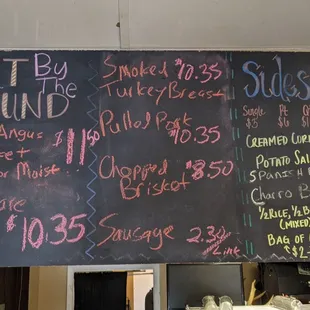 By
The
UND
Angus
$11.50
or Moist
$10.35
Smoked
Turkey Breast
$10.35
Pulled Pork
$10.35
Chopped
Brisket
$8.50
Sausage 2.30
Link
Sides
Single Pt
$3 $6
CREAMED CORN
POTATO SAL
SPANISH
CHARRO B
1/2 RICE, 1/2 B
(MIXED)
BAG OF
$2